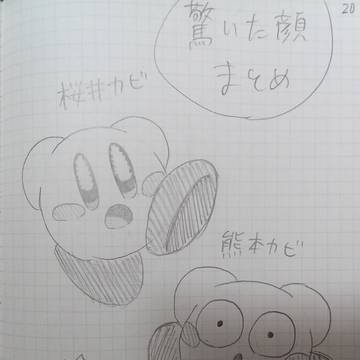 20
驚いた顔
まとめ
桜井カビ
熊本カビ